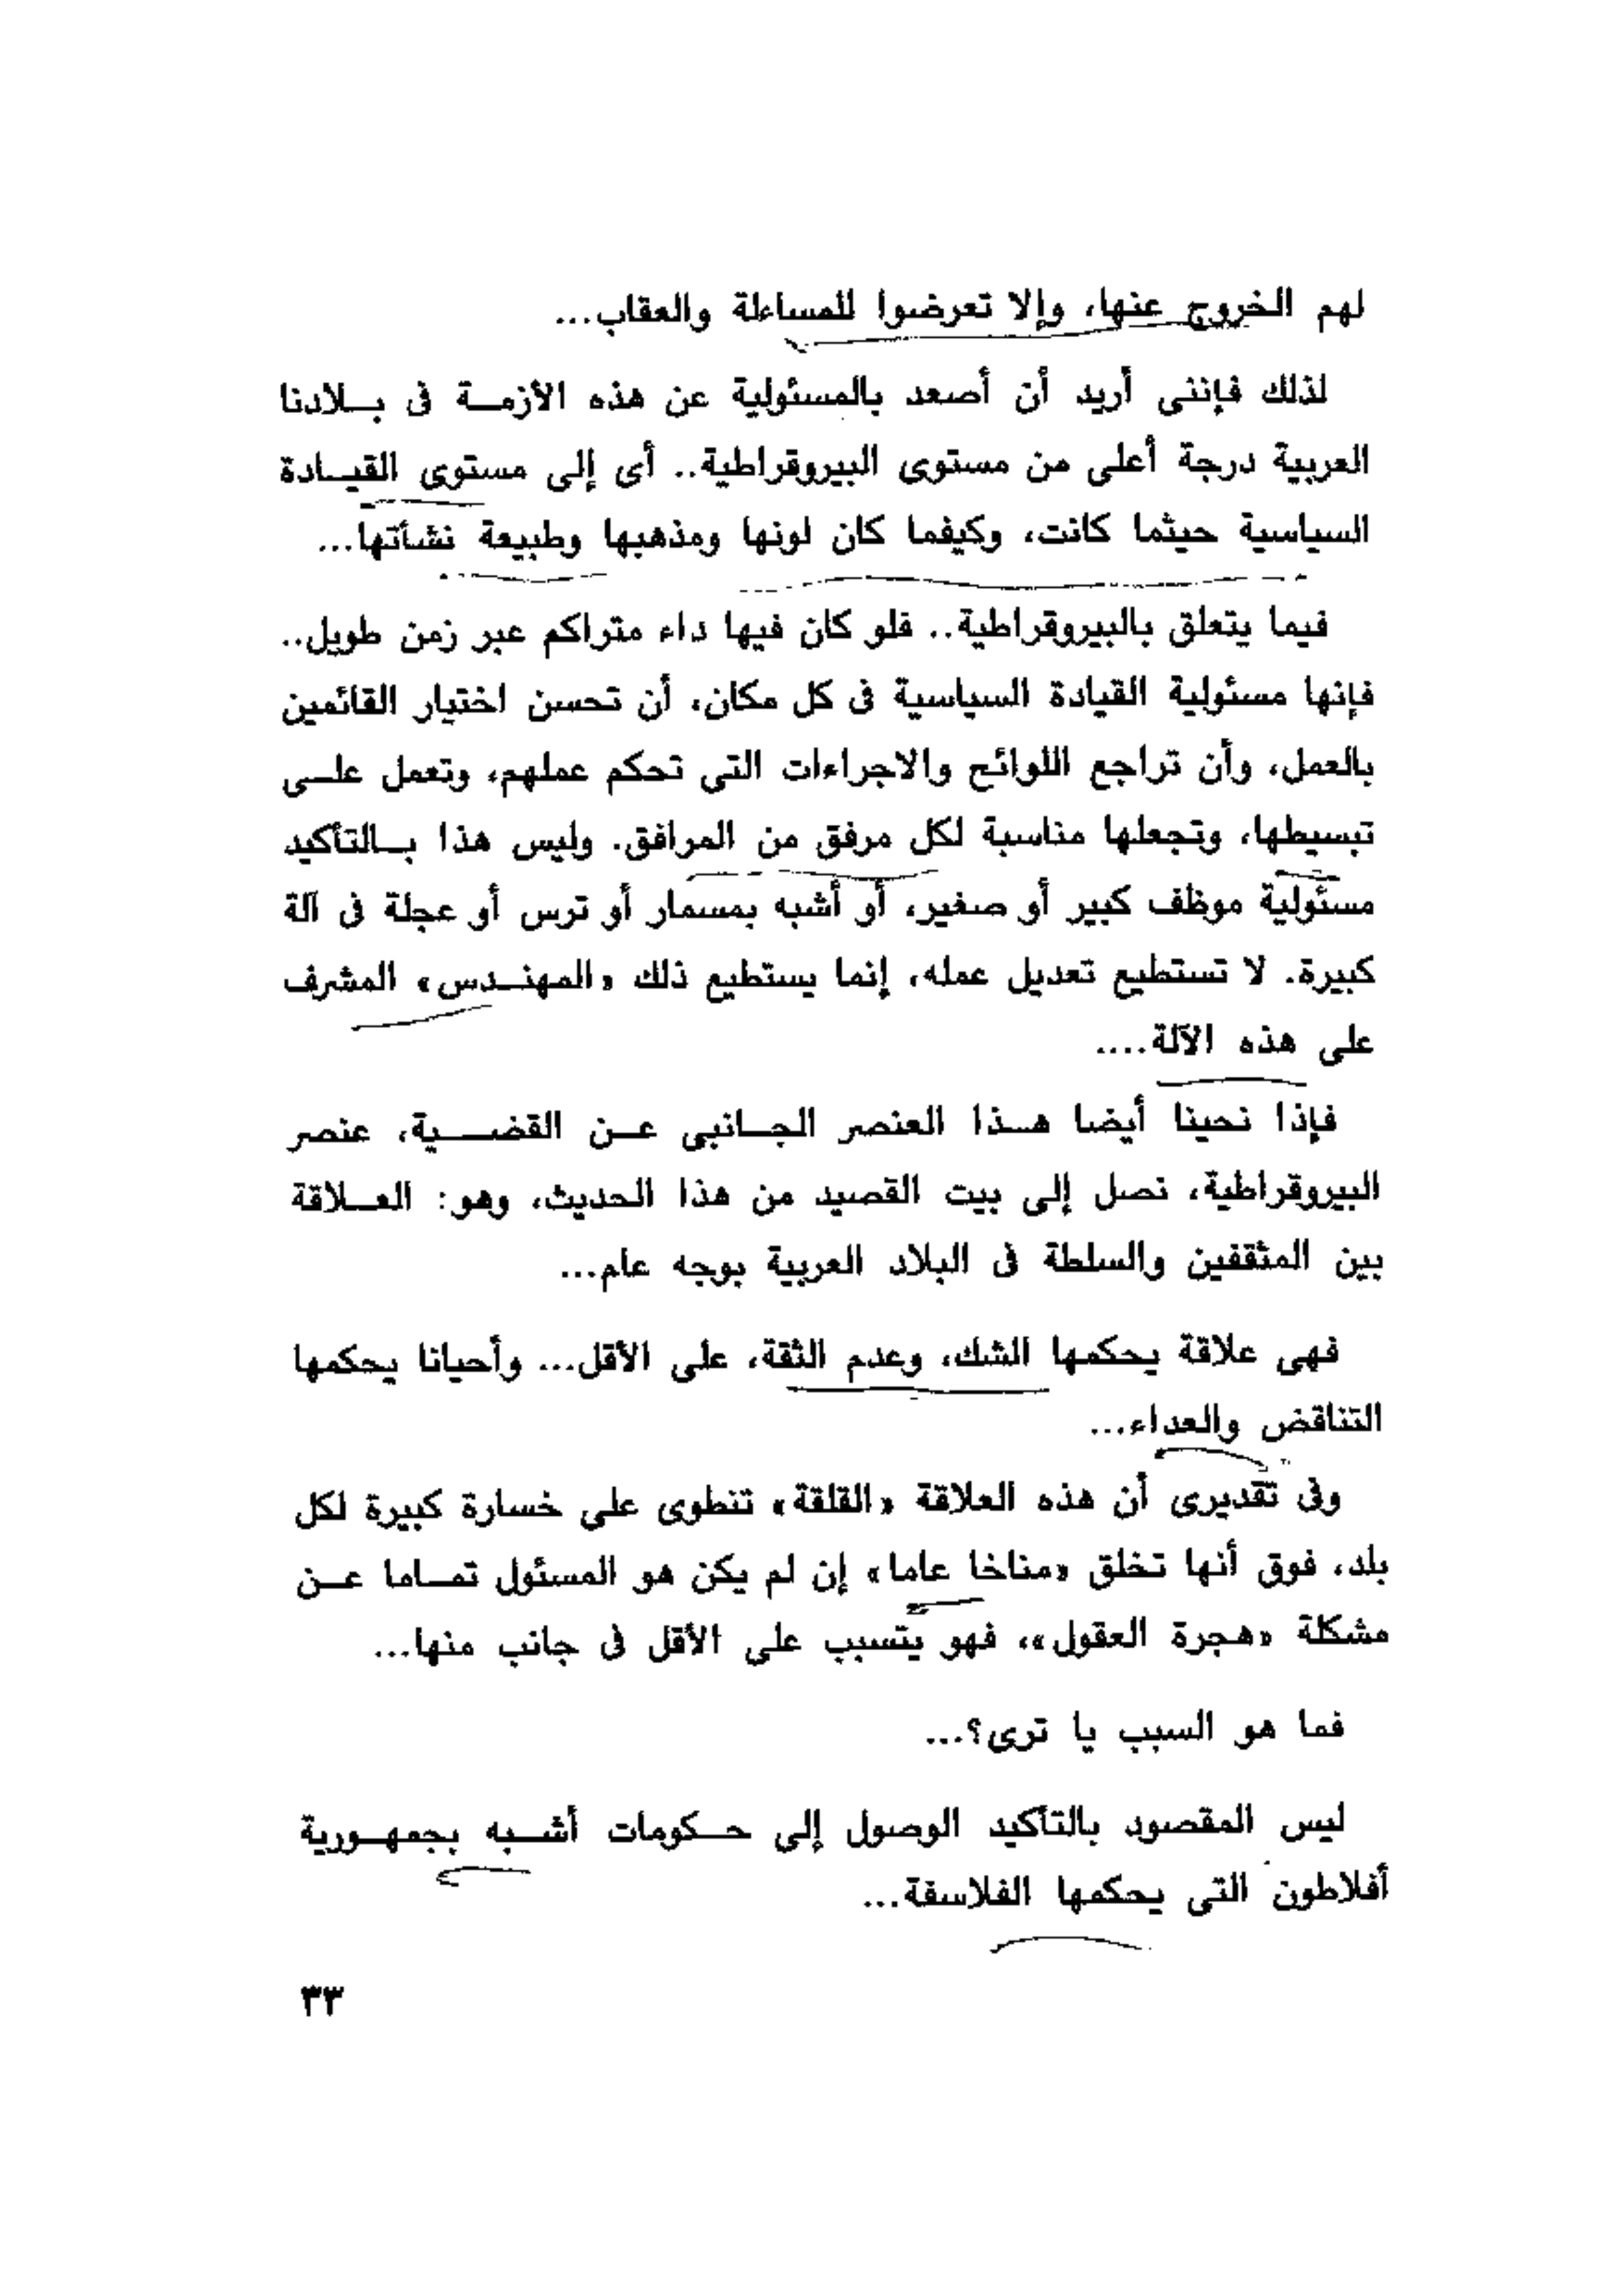 لهم الخروج عنها، وإلا تعرضوا للمساءلة والعقاب...
لذلك فإننى أريد أن أصعد بالمسئولية عن هذه الأزمة فى بلادنا
العربية درجة أعلى من مستوى البيروقراطية.. أى إلى مستوى القيادة
السياسية حيثما كانت، وكيفما كان لونها ومذهبها وطبيعة نشأتها...
فيما يتعلق بالبيروقراطية.. فلو كان فيها داء متراكم عبر زمن طويل..
فإنها مسئولية القيادة السياسية فى كل مكان، أن تحسن اختيار القائمين
بالعمل، وأن تراجع اللوائح والاجراءات التى تحكم عملهم، وتعمل على
تبسيطها، وتجعلها مناسبة لكل مرفق من المرافق. وليس هذا بالتأكيد
مسئولية موظف كبير أو صغير، أو أشبه بمسمار أو ترس أو عجلة فى آلة
كبيرة. لا تستطيع تعديل عمله، إنما يستطيع ذلك «المهندس» المشرف
على هذه الآلة....
فإذا نحينا أيضا هذا العنصر الجانبى عن القضية، عنصر
البيروقراطية، نصل إلى بيت القصيد من هذا الحديث، وهو: العلاقة
بين المثقفين والسلطة فى البلاد العربية بوجه عام...
فهى علاقة يحكمها الشك، وعدم الثقة، على الأقل... وأحيانا يحكمها
التناقض والعداء...
وفى تقديرى أن هذه العلاقة «القلقة» تنطوى على خسارة كبيرة لكل
بلد، فوق أنها تخلق «مناخا عاما» إن لم يكن هو المسئول تماما عن
مشكلة «هجرة العقول»، فهو يتسبب على الأقل فى جانب منها...
فما هو السبب يا ترى؟...
ليس المقصود بالتأكيد الوصول إلى حكومات أشبه بجمهورية
أفلاطون التى يحكمها الفلاسفة...
٣٣